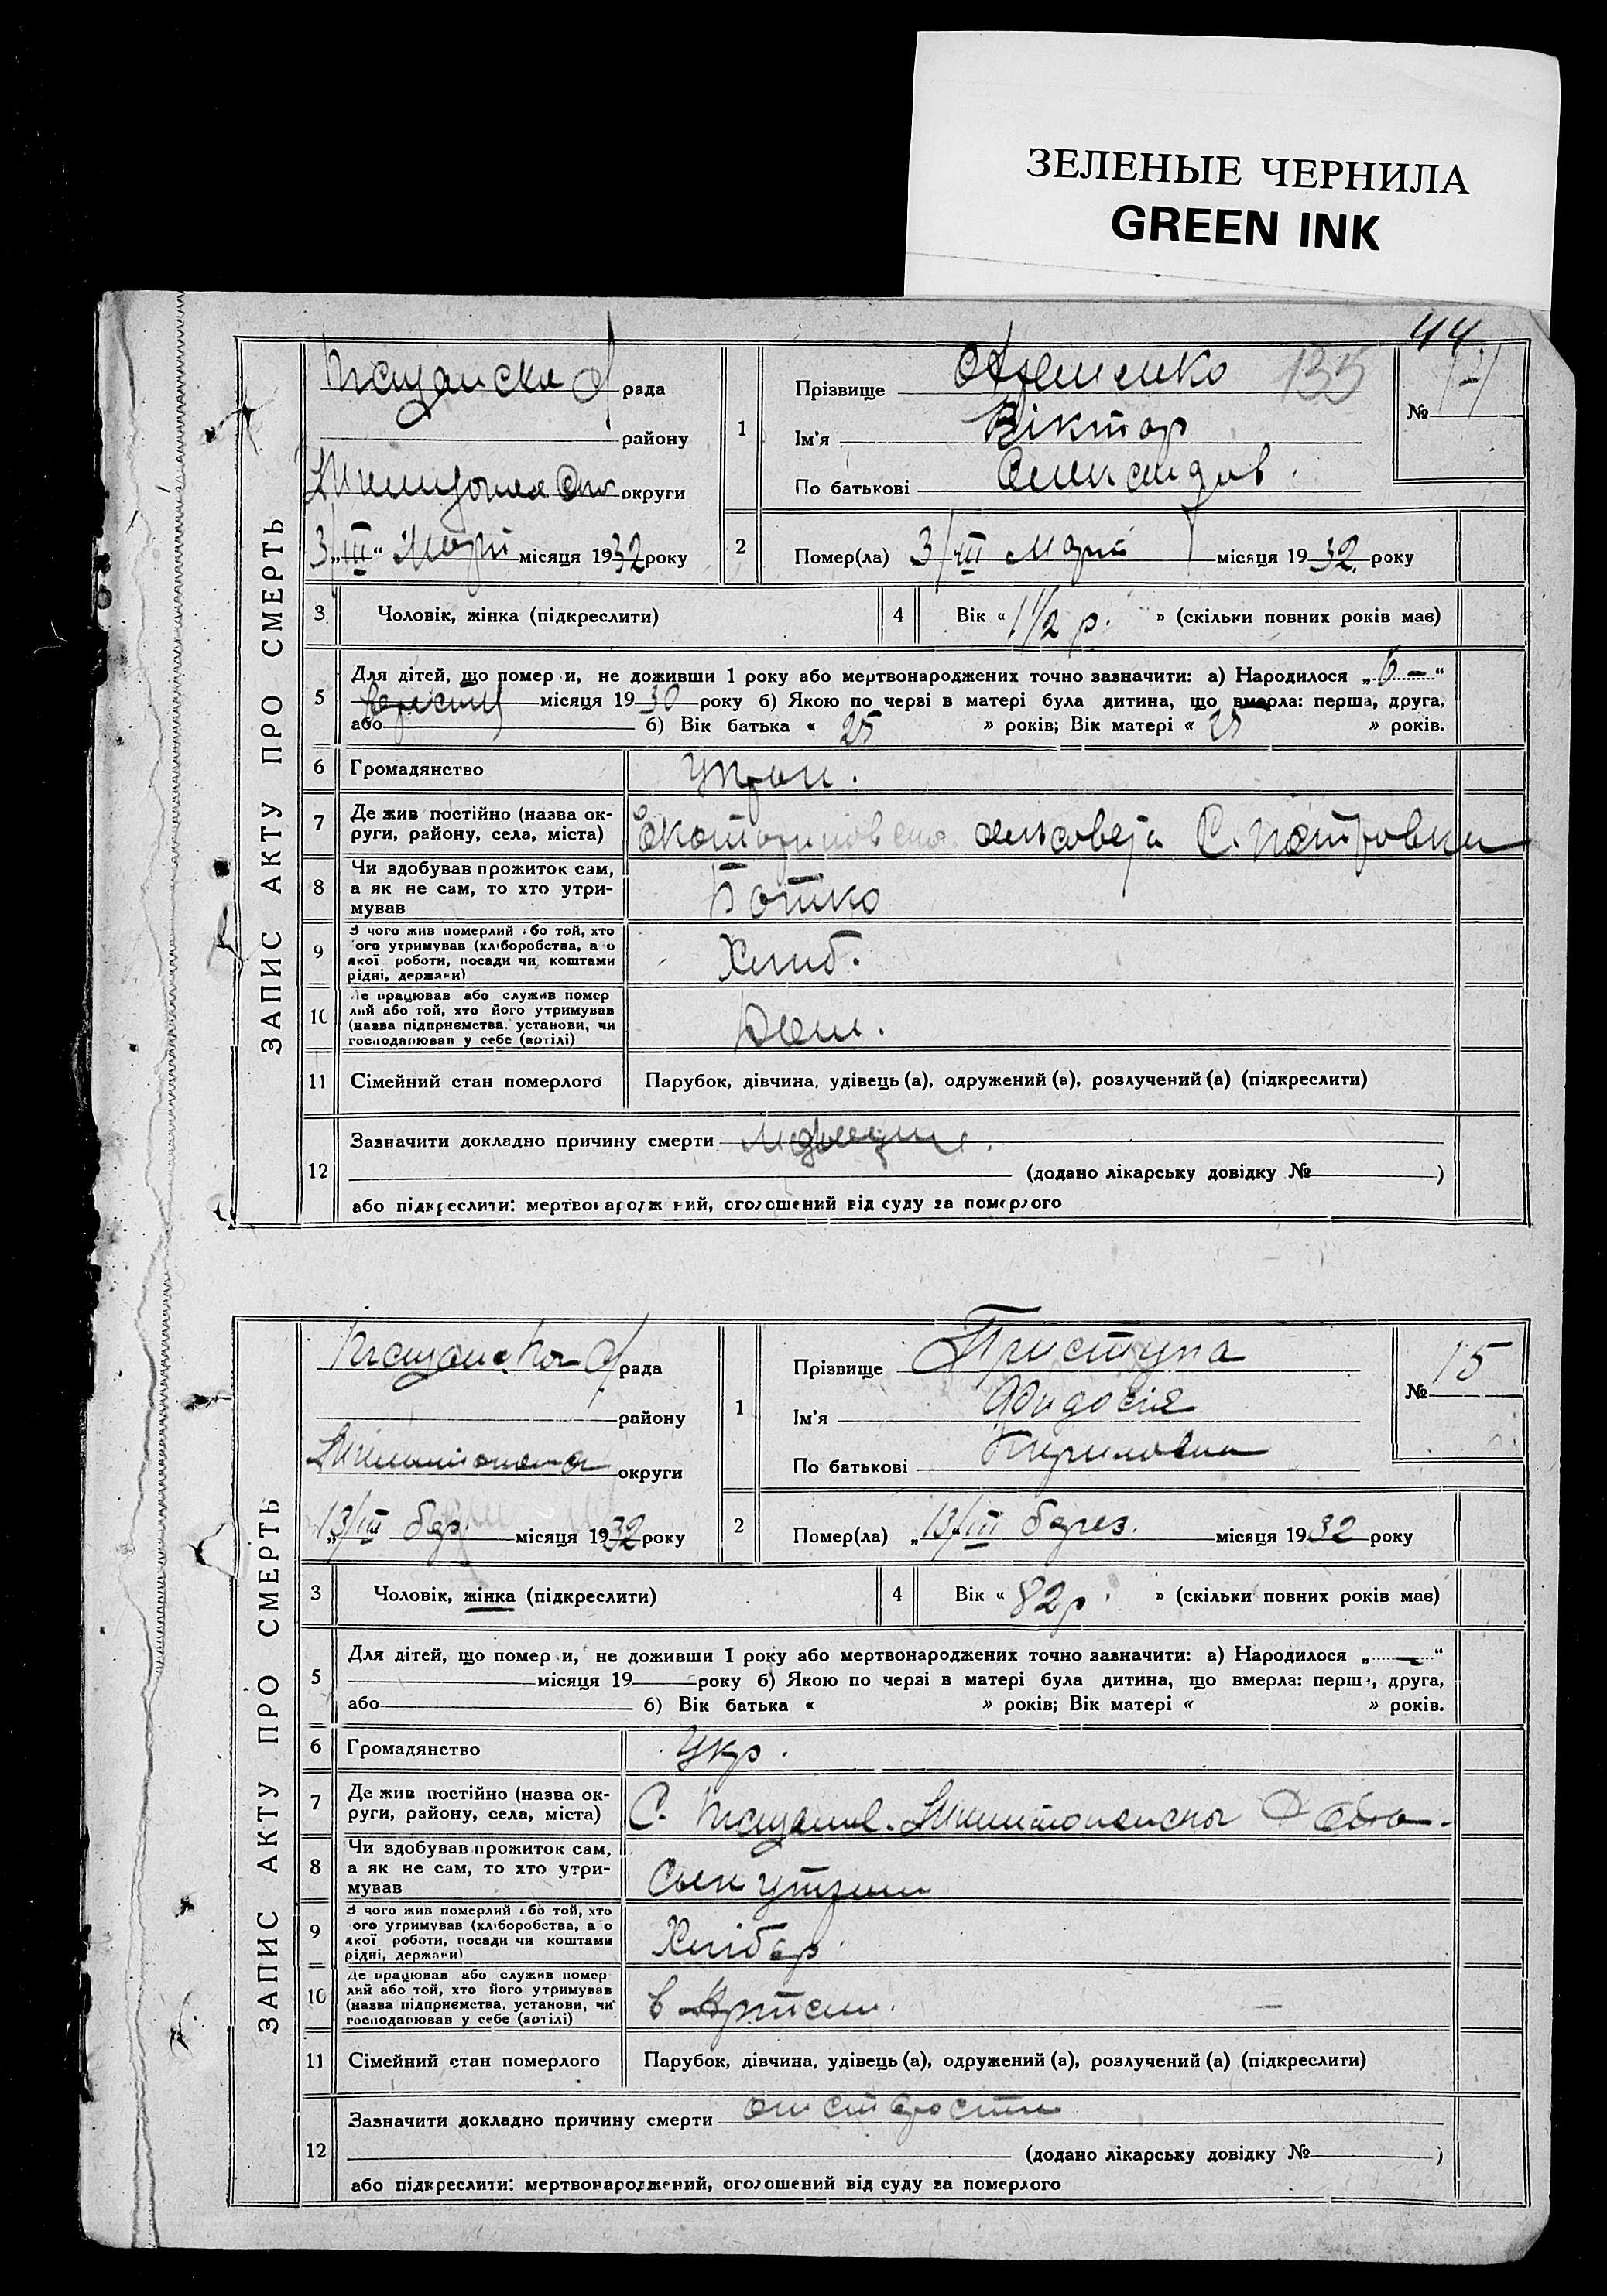 ЗЕЛЕНЫЕ ЧЕРНИЛА
GREEN INK
44
ЗАПИС АКТУ ПРО СМЕРТЬ
рада
району
округи
3 „III“ місяця 1932 року
1
Прізвище 135
Ім'я Віктор
По батькові
№
2
Помер(ла) 3/III місяця 1932 року
3 Чоловік, жінка (підкреслити)
4 Вік « 1 1/2 р. » (скільки повних років має)
5 Для дітей, що померли, не доживши 1 року або мертвонароджених точно зазначити: а) Народилося „6 —“
місяця 1930 року б) Якою по черзі в матері була дитина, що вмерла: перша, друга,
або б) Вік батька « 25 » років; Вік матері « 25 » років.
6 Громадянство
7 Де жив постійно (назва округи, району, села, міста) С. Петровки
8 Чи здобував прожиток сам, а як не сам, то хто утримував Батко
9 З чого жив померлий або той, хто його утримував (хліборобства, або якої роботи, посади чи коштами рідні, держави) Хліб.
10 Де працював або служив померлий або той, хто його утримував (назва підприємства, установи, чи господарював у себе (артілі)
11 Сімейний стан померлого Парубок, дівчина, удівець (а), одружений (а), розлучений (а) (підкреслити)
12 Зазначити докладно причину смерти
(додано лікарську довідку № )
або підкреслити: мертвонароджений, оголошений від суду за померлого
ЗАПИС АКТУ ПРО СМЕРТЬ
рада
району
округи
„13/III бер. місяця 1932 року
1
Прізвище Приступа
Ім'я
По батькові Кириловна
№ 15
2
Помер(ла) „13/III берез. місяця 1932 року
3 Чоловік, жінка (підкреслити)
4 Вік « 82 р. » (скільки повних років має)
5 Для дітей, що померли, не доживши 1 року або мертвонароджених точно зазначити: а) Народилося „ — “
місяця 19 року б) Якою по черзі в матері була дитина, що вмерла: перша, друга,
або б) Вік батька « » років; Вік матері « » років.
6 Громадянство Укр.
7 Де жив постійно (назва округи, району, села, міста) С.
8 Чи здобував прожиток сам, а як не сам, то хто утримував Сын
9 З чого жив померлий або той, хто його утримував (хліборобства, або якої роботи, посади чи коштами рідні, держави) Хлібор.
10 Де працював або служив померлий або той, хто його утримував (назва підприємства, установи, чи господарював у себе (артілі) в
11 Сімейний стан померлого Парубок, дівчина, удівець (а), одружений (а), розлучений (а) (підкреслити)
12 Зазначити докладно причину смерти от старости
(додано лікарську довідку № )
або підкреслити: мертвонароджений, оголошений від суду за померлого